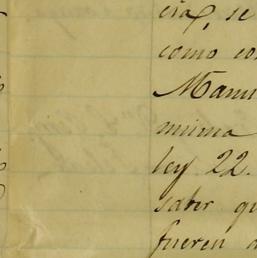 se
como
Manu
misma
ley 22.
saber qu
fueren d